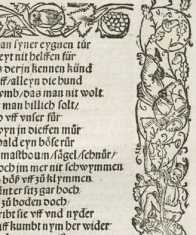 an syner eygnen tür
eyt nit helffen für
s derjn kennen künd
ff/alleyn die hund
ymb/das man nit wolt
man billich solt/
vff vnser für
yn jn dieffen mür
bald eyn böser für
mastboum/sägel/schnür/
och jm mer nit schwymmen
böß vff zů klymmen
inter sitz gar hoch
zů boden doch
ribt sie vff vnd nyder
iff kumbt nym her wider